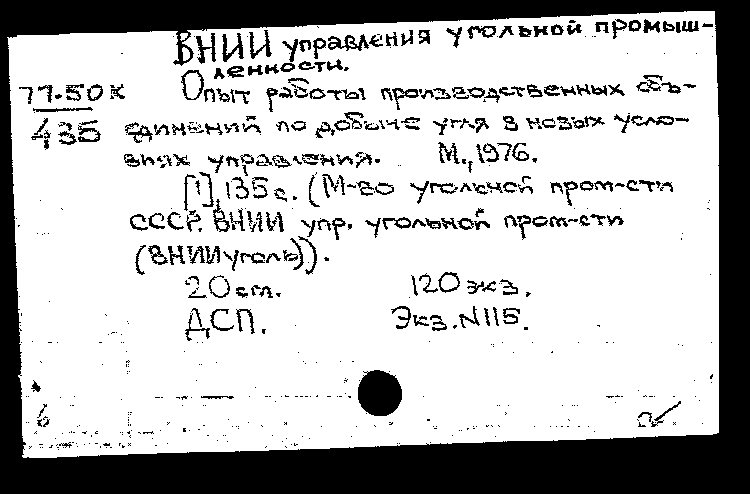 ВНИИ управления угольной промыш-
ленности.
77-50к
435
Опыт работы производственных объ-
единений по добыче угля в новых усло-
виях управления. М., 1976.
[1], 135 с. (М-во угольной пром-сти
СССР. ВНИИ упр. угольной пром-сти
(ВНИИуголь)).
20 ст. 120 экз.
ДСП. Экз. N115.
6